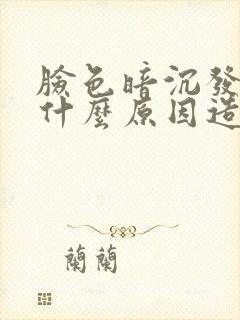 臉色暗沉發
什麼原因造
蘭蘭